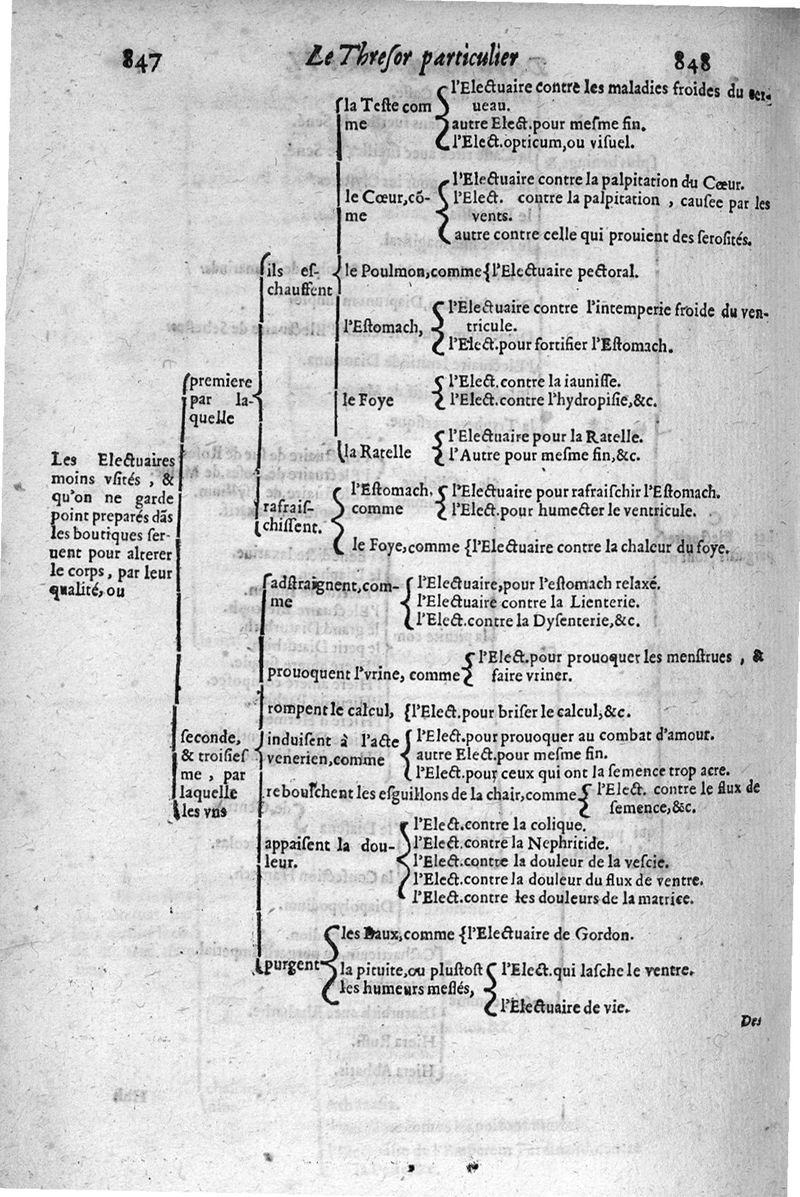 847 Le Thresor particulier 848
la Teste com
me
l'Electuaire contre les maladies froides du cer-
ueau.
autre Elect.pour mesme fin.
l'Elect.opticum,ou visuel.
le Cœur,cõ-
me
l'Electuaire contre la palpitation du Cœur.
l'Elect. contre la palpitation , causee par les
vents.
autre contre celle qui prouient des serosités.
ils es-
chauffent
le Poulmon,comme {l'Electuaire pectoral.
l'Estomach,
l'Electuaire contre l'intemperie froide du ven-
tricule.
l'Elect.pour fortifier l'Estomach.
premiere
par la-
quelle
le Foye
l'Elect.contre la iaunisse.
l'Elect.contre l'hydropisie,&c.
la Ratelle
l'Electuaire pour la Ratelle.
l'Autre pour mesme fin,&c.
Les Electuaires
moins vsités , &
qu'on ne garde
point preparés dãs
les boutiques ser-
uent pour alterer
le corps , par leur
qualité, ou
rafrais-
chissent.
l'Estomach,
comme
l'Electuaire pour rafraischir l'Estomach.
l'Elect.pour humecter le ventricule.
le Foye, comme {l'Electuaire contre la chaleur du foye.
adstraignent,com-
me
l'Electuaire,pour l'estomach relaxé.
l'Electuaire contre la Lienterie.
l'Elect.contre la Dysenterie,&c.
prouoquent l'vrine, comme
l'Elect.pour prouoquer les menstrues , &
faire vriner.
rompent le calcul, {l'Elect.pour briser le calcul,&c.
seconde,
& troisies
me , par
laquelle
les vns
induisent à l'acte
venerien,comme
l'Elect.pour prouoquer au combat d'amour.
autre Elect.pour mesme fin.
l'Elect.pour ceux qui ont la semence trop acre.
rebouschent les esguillons de la chair,comme
l'Elect. contre le flux de
semence,&c.
appaisent la dou-
leur.
l'Elect.contre la colique.
l'Elect.contre la Nephritide.
l'Elect.contre la douleur de la vescie.
l'Elect.contre la douleur du flux de ventre.
l'Elect.contre les douleurs de la matrice.
purgent
les Eaux,comme {l'Electuaire de Gordon.
la pituite,ou plustost
les humeurs meslés,
l'Elect.qui lasche le ventre.
l'Electuaire de vie.
Des